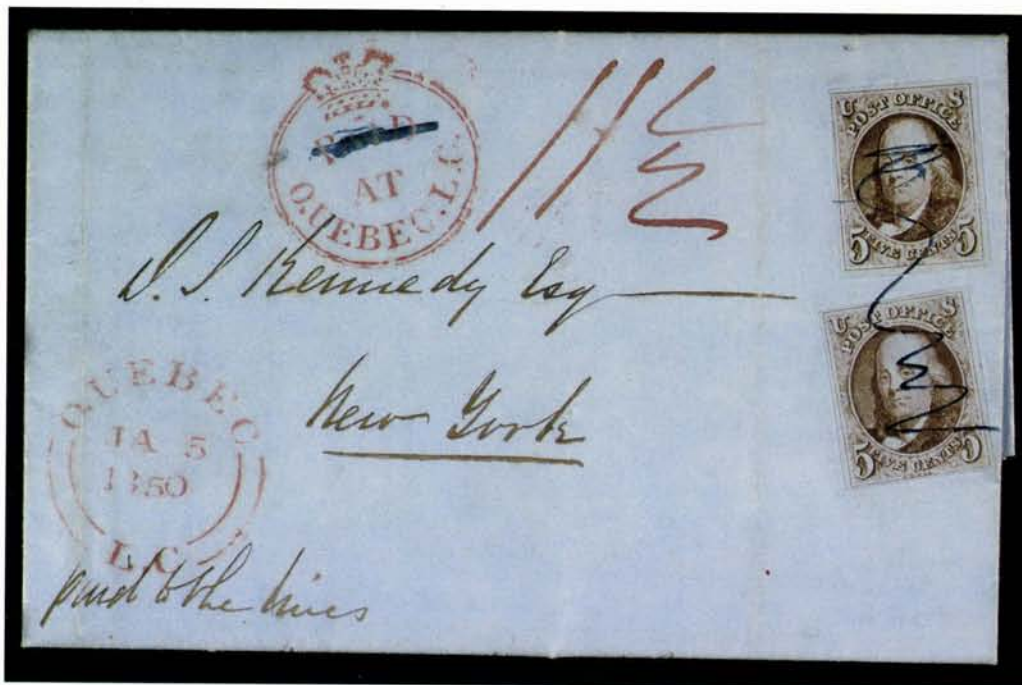 PAID
AT
QUEBEC. L.C.
11½
U S
POST OFFICE
5 FIVE CENTS 5
D. S. Kennedy Esq
U S
POST OFFICE
5 FIVE CENTS 5
QUEBEC
JA 5
1850
L.C.
New York
paid to the lines